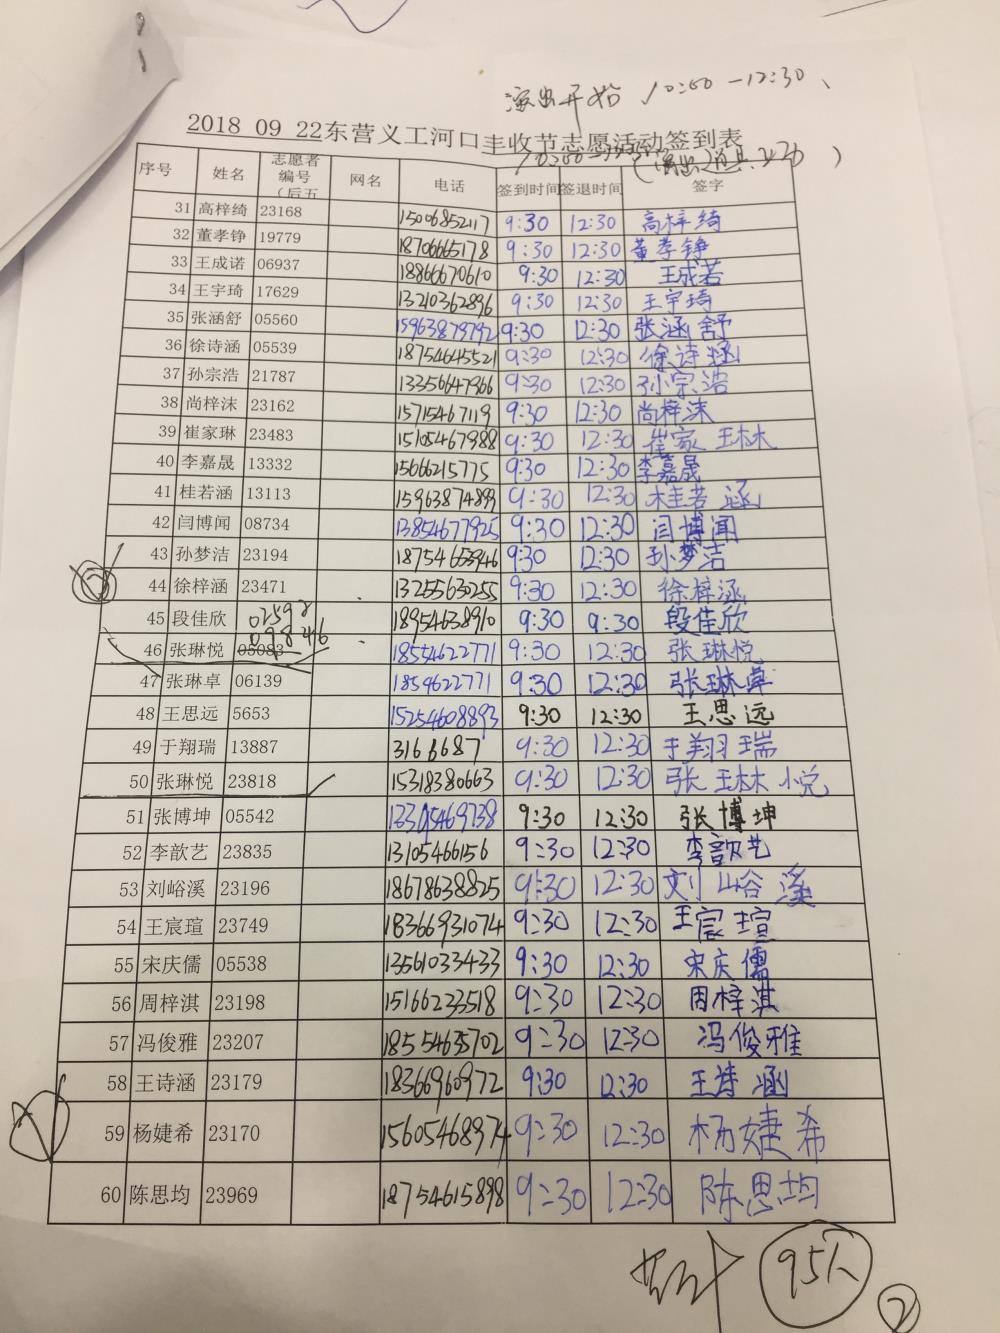 演出开始 10:00-12:30、
2018 09 22东营义工河口丰收节志愿活动签到表
序号 姓名 志愿者编号（后五 网名 电话 签到时间 签退时间 签字
31 高梓绮 23168 15006852117 9:30 12:30 高梓绮
32 董孝铮 19779 18706665178 9:30 12:30 董孝铮
33 王成诺 06937 18866670610 9:30 12:30 王成若
34 王宇琦 17629 13210362896 9:30 12:30 王宇琦
35 张涵舒 05560 15963879792 9:30 12:30 张涵舒
36 徐诗涵 05539 18754645521 9:30 12:30 徐诗涵
37 孙宗浩 21787 13356647966 9:30 12:30 孙宗浩
38 尚梓沫 23162 15715467119 9:30 12:30 尚梓沫
39 崔家琳 23483 15105467988 9:30 12:30 崔家琳
40 李嘉晟 13332 15666215775 9:30 12:30 李嘉晟
41 桂若涵 13113 15963874899 9:30 12:30 桂若涵
42 闫博闻 08734 13854677925 9:30 12:30 闫博闻
43 孙梦洁 23194 18754653946 9:30 12:30 孙梦洁
44 徐梓涵 23471 13255630255 9:30 12:30 徐梓涵
45 段佳欣 02598 18954638910 9:30 9:30 段佳欣
46 张琳悦 05083 09846 18554622771 9:30 12:30 张琳悦
47 张琳卓 06139 1859622771 9:30 12:30 张琳卓
48 王思远 5653 15254608893 9:30 12:30 王思远
49 于翔瑞 13887 3166687 9:30 12:30 于翔瑞
50 张琳悦 23818 15318380663 9:30 12:30 张琳悦
51 张博坤 05542 13305469738 9:30 12:30 张博坤
52 李歆艺 23835 13105466156 9:30 12:30 李歆艺
53 刘峪溪 23196 18678638825 9:30 12:30 刘峪溪
54 王宸瑄 23749 18366931074 9:30 12:30 王宸瑄
55 宋庆儒 05538 13561033433 9:30 12:30 宋庆儒
56 周梓淇 23198 15166233518 9:30 12:30 周梓淇
57 冯俊雅 23207 18554635702 9:30 12:30 冯俊雅
58 王诗涵 23179 18366960972 9:30 12:30 王诗涵
59 杨婕希 23170 15605468974 9:30 12:30 杨婕希
60 陈思均 23969 18754615898 9:30 12:30 陈思均
95人
2